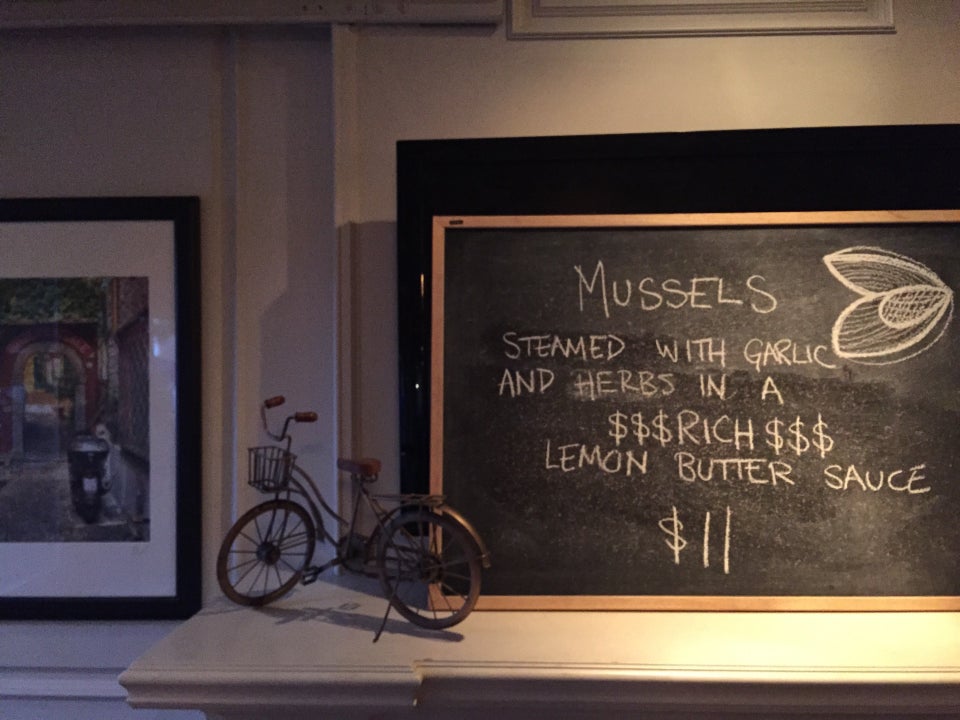 MUSSELS
STEAMED WITH GARLIC
AND HERBS IN A
$$$RICH$$$
LEMON BUTTER SAUCE
$11